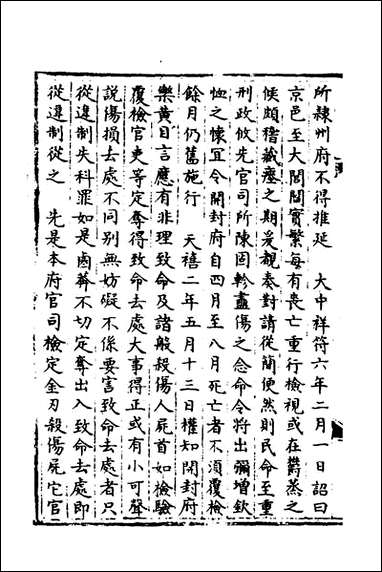 所隸州府不得推延　大中祥符六年二月一日詔曰
京邑至大閭閻實繁每有喪亡重行檢視或在欝蒸之
候頗稽藏瘞之期爰覩奏對請從簡便然則民命至重
刑政攸先官司所陳固軫盡傷之念命令將出彌增欽
恤之懷冝令開封府自四月至八月死亡者不須覆檢
餘月仍舊施行　天禧二年五月十三日權知開封府
樂黃目言應有非理致命及諸般殺傷人屍首如檢驗
覆檢官吏等定奪得致命去處大事得正或有小可聲
說傷損去處不同別無妨礙不係要害致命去處者只
從違制失科罪如是鹵莽不切定奪出入致命去處即
從違制從之　先是本府官司檢定金刃殺傷屍它官